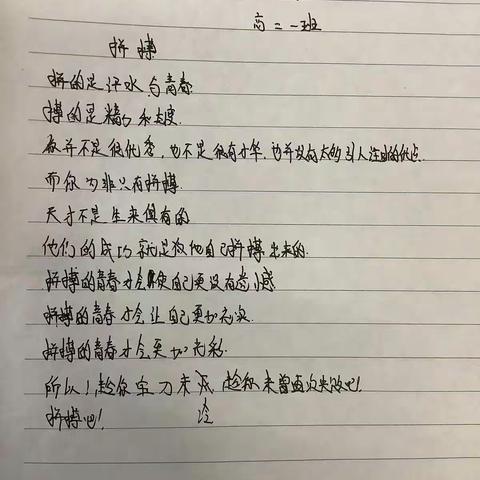 高二一班
拼搏
拼的是汗水与青春
搏的是精力和态度.
虽并不是很优秀，也不是很有才华，也并没有太多引人注目的优点.
而你 非只有拼搏.
天才不是生来俱有的
他们的成功就是 他自己拼搏出来的.
拼搏的青春才会使自己更没有遗憾
拼搏的青春才会让自己更加充实.
拼搏的青春才会更加光彩.
所以！趁你宝刀未 ，趁你未曾面 失败吧！
拼搏吧！
冷